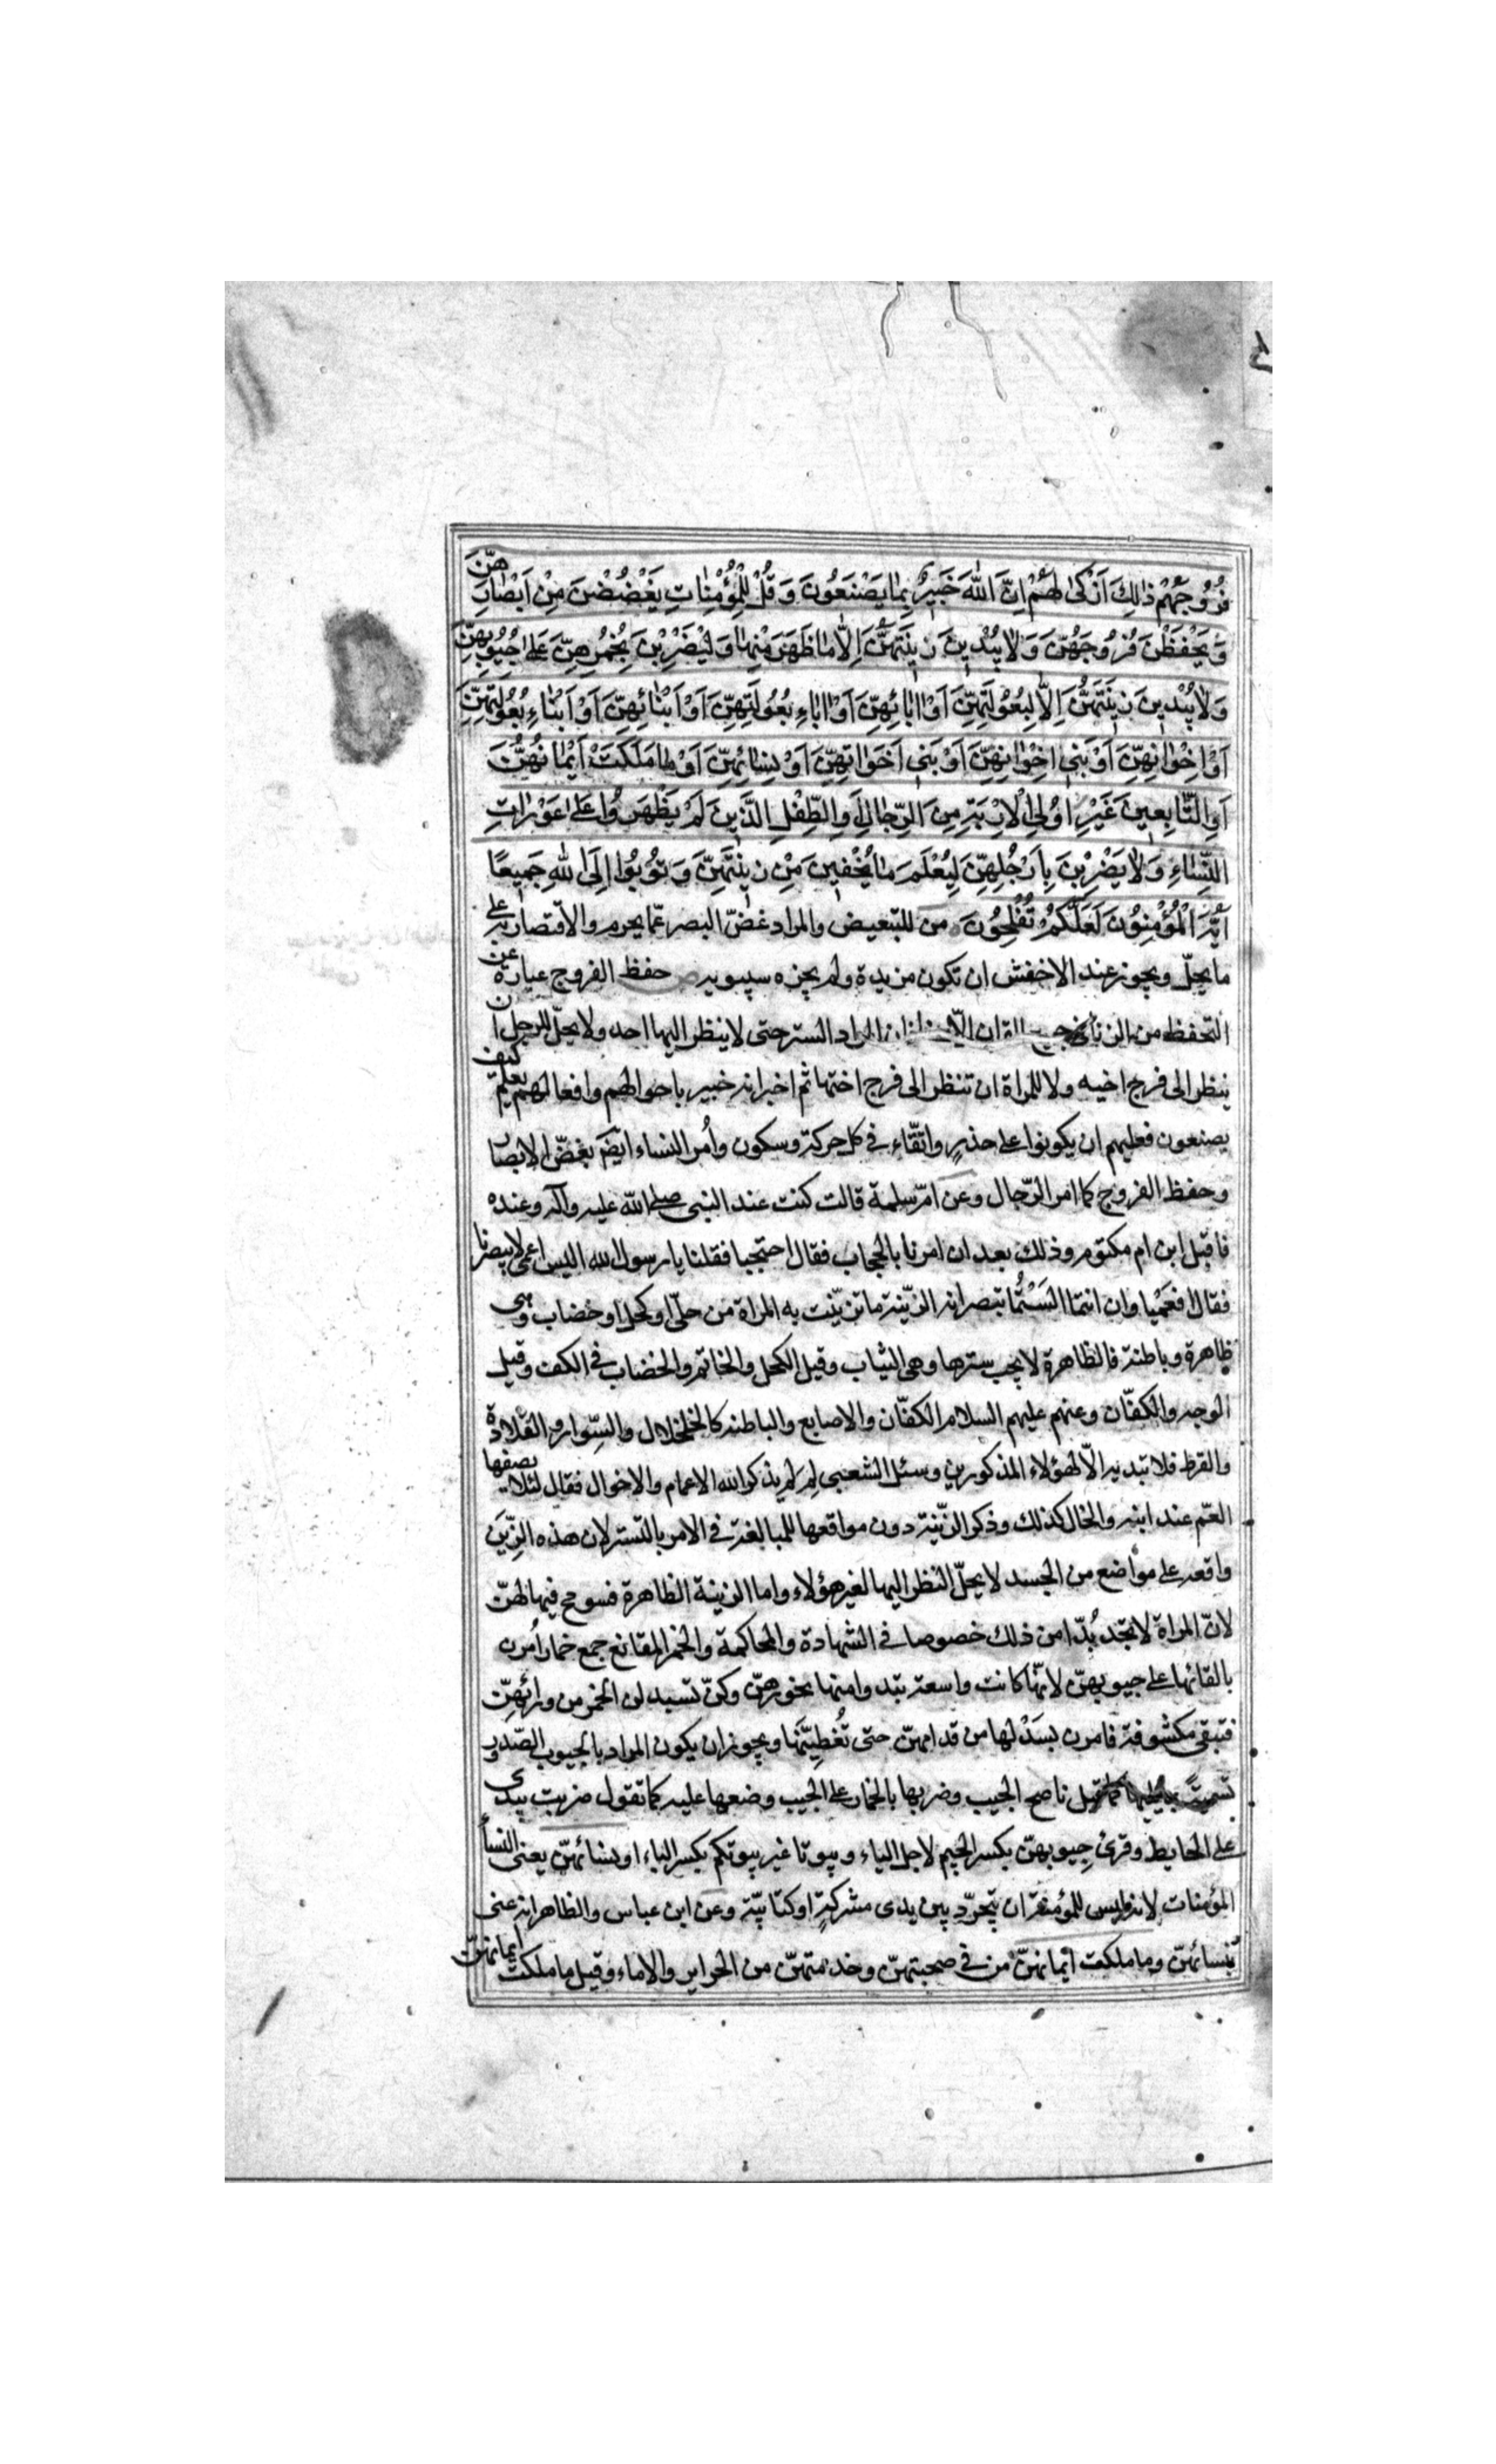 فُرُوجَهُمْ ذٰلِكَ اَزْكىٰ لَهُمْ اِنَّ اللّٰهَ خَبِيرٌ بِمٰا يَصْنَعُونَ وَ قُلْ لِلْمُؤْمِنٰاتِ يَغْضُضْنَ مِنْ اَبْصٰارِهِنَّ
وَ يَحْفَظْنَ فُرُوجَهُنَّ وَ لاٰ يُبْدِينَ زِينَتَهُنَّ اِلاّٰ مٰا ظَهَرَ مِنْهٰا وَ لْيَضْرِبْنَ بِخُمُرِهِنَّ عَلىٰ جُيُوبِهِنَّ
وَ لاٰ يُبْدِينَ زِينَتَهُنَّ اِلاّٰ لِبُعُولَتِهِنَّ اَوْ اٰبٰائِهِنَّ اَوْ اٰبٰاءِ بُعُولَتِهِنَّ اَوْ اَبْنٰائِهِنَّ اَوْ اَبْنٰاءِ بُعُولَتِهِنَّ
اَوْ اِخْوٰانِهِنَّ اَوْ بَنِي اِخْوٰانِهِنَّ اَوْ بَنِي اَخَوٰاتِهِنَّ اَوْ نِسٰائِهِنَّ اَوْ مٰا مَلَكَتْ اَيْمٰانُهُنَّ
اَوِ التّٰابِعِينَ غَيْرِ اُولِي الْاِرْبَةِ مِنَ الرِّجٰالِ اَوِ الطِّفْلِ الَّذِينَ لَمْ يَظْهَرُوا عَلىٰ عَوْرٰاتِ
النِّسٰاءِ وَ لاٰ يَضْرِبْنَ بِاَرْجُلِهِنَّ لِيُعْلَمَ مٰا يُخْفِينَ مِنْ زِينَتِهِنَّ وَ تُوبُوا اِلَى اللّٰهِ جَمِيعًا
اَيُّهَ الْمُؤْمِنُونَ لَعَلَّكُمْ تُفْلِحُونَ من للتبعيض والمراد غضّ البصر عمّا يحرم والاقتصار به على
ما يحلّ ويجوز عند الاخفش ان تكون مزيدة ولم يجزه سيبويه حفظ الفروج عبارة عن
التحفظ من الزنا في جميع القران الّا هنا فان المراد الستر حتى لا ينظر اليها احد ولا يحلّ للرجل ان
ينظر الى فرج اخيه ولا للمراة ان تنظر الى فرج اختها ثم اخبر انه خبير باحوالهم وافعالهم يعلم كيف
يصنعون فعليهم ان يكونوا على حذرٍ واتّقاء في كل حركة وسكون وأمر النساء ايضًا بغضّ الابصار
وحفظ الفروج كما امر الرّجال وعن امّ سلمة قالت كنت عند النبي صلى الله عليه وآله وعنده
فاقبل ابن ام مكتوم وذلك بعد ان امرنا بالحجاب فقال احتجبا فقلنا يا رسول الله اليس اعمى لا يبصرنا
فقال افعميا وان انتما الستُما تبصرانه الزّينة ما تزيّنت به المراة من حلّى او كحل او خضاب وهى
ظاهرة وباطنة فالظاهرة لا يجب سترها وهى الثياب وقيل الكحل والخاتم والخضاب في الكف وقيل
الوجه والكفّان وعنهم عليهم السلام الكفّان والاصابع والباطنة كالخلخال والسِّوار والقلادة
والقرط فلا تبديه الّا لهؤلاء المذكورين وسئل الشعبى لِمَ لم يذكر الله الاعمام والاخوال فقال لئلا يصفها
العمّ عند ابنه والخال كذلك وذكر الزّينة دون مواقعها للمبالغة في الامر بالتستر لان هذه الزِّيَن
واقعة على مواضع من الجسد لا يحلّ النظر اليها لغير هؤلاء واما الزينة الظاهرة فسومح فيها لهنّ
لانّ المراة لا تجد بُدّا من ذلك خصوصا في الشهادة والمحاكمة والخمر المقانع جمع خمار اُمرن
بالقائها على جيوبهنّ لانّها كانت واسعة تبدو امنها نحورهنّ وكنّ تسيدلن الخمر من ورائهنّ
فتبقى مكشوفة فامرن بسَدْلها من قدامهنّ حتى تُغطيّنها ويجوز ان يكون المراد بالجيوب الصّدور
تسميةً بما يليها كما قيل ناصح الجيب وضربها بالخمار على الجيب وضعها عليه كما تقول ضربت بيدى
على الحايط وقرئ جِيوبهنّ بكسر الجيم لاجل الياء وبيوتا غير بيوتكم بكسر الباء او نسائهنّ يعنى النساء
المؤمنات لانه ليس للمؤمنة ان تتجرّد بين يدى مشركةٍ او كتابيّة وعن ابن عباس والظاهر انه عنى
بنسائهنّ وما ملكت ايمانهنّ من في صحبتهنّ وخدمتهنّ من الحراير والاماء وقيل ما ملكت ايمانهنّ